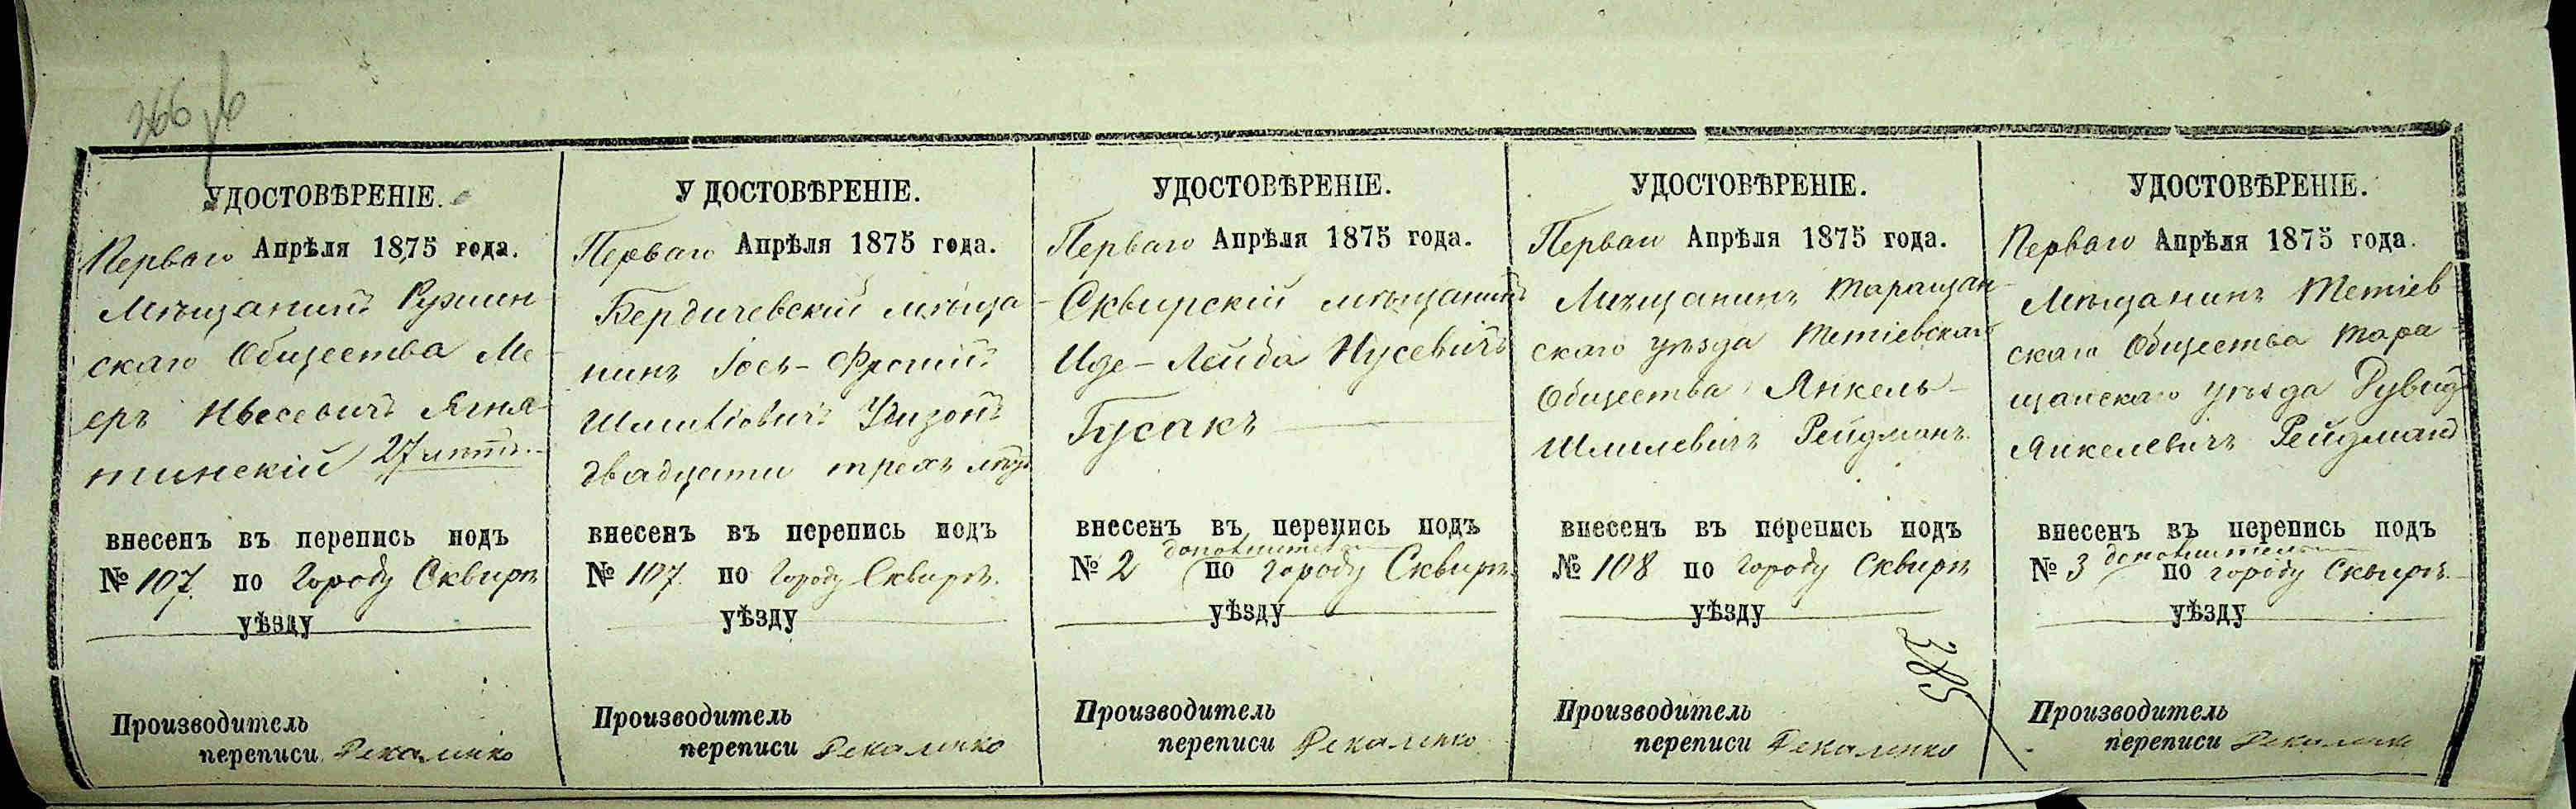 366
УДОСТОВѢРЕНІЕ.
Перваго Апрѣля 1875 года.
Мѣщанинъ Ружин
скаго Общества Ме
еръ Ягня-
тинскій 27 лѣтъ.
внесенъ въ перепись подъ
№ 107. по Городу Сквирѣ
уѣзду
Производитель
переписи Рекаленко
УДОСТОВѢРЕНІЕ.
Перваго Апрѣля 1875 года.
Бердичевскій мѣща
нинъ
двадцати трехъ лѣтъ
внесенъ въ перепись подъ
№ 107. по Городу Сквирѣ.
уѣзду
Производитель
переписи Рекаленко
УДОСТОВѢРЕНІЕ.
Перваго Апрѣля 1875 года.
Сквирскій мѣщанинъ
Иде-Лейба Нусевичъ
Гусакъ
внесенъ въ перепись подъ
дополнительн
№ 2 по городу Сквирѣ
уѣзду
Производитель
переписи Рекаленко
УДОСТОВѢРЕНІЕ.
Перваго Апрѣля 1875 года.
Мѣщанинъ Таращан-
скаго уѣзда Тетіевскаго
Общества Янкель-
Шмилевичъ Рейдманъ
внесенъ въ перепись подъ
№ 108 по Городу Сквирѣ
уѣзду
385
Производитель
переписи Рекаленко
УДОСТОВѢРЕНІЕ.
Перваго Апрѣля 1875 года.
Мѣщанинъ Тетіев
скаго Общества Тара
щанскаго уѣзда Рувид
Янкелевичъ Рейдманъ
внесенъ въ перепись подъ
дополнительн
№ 3 по городу Сквирѣ.
уѣзду
Производитель
переписи Рекаленко